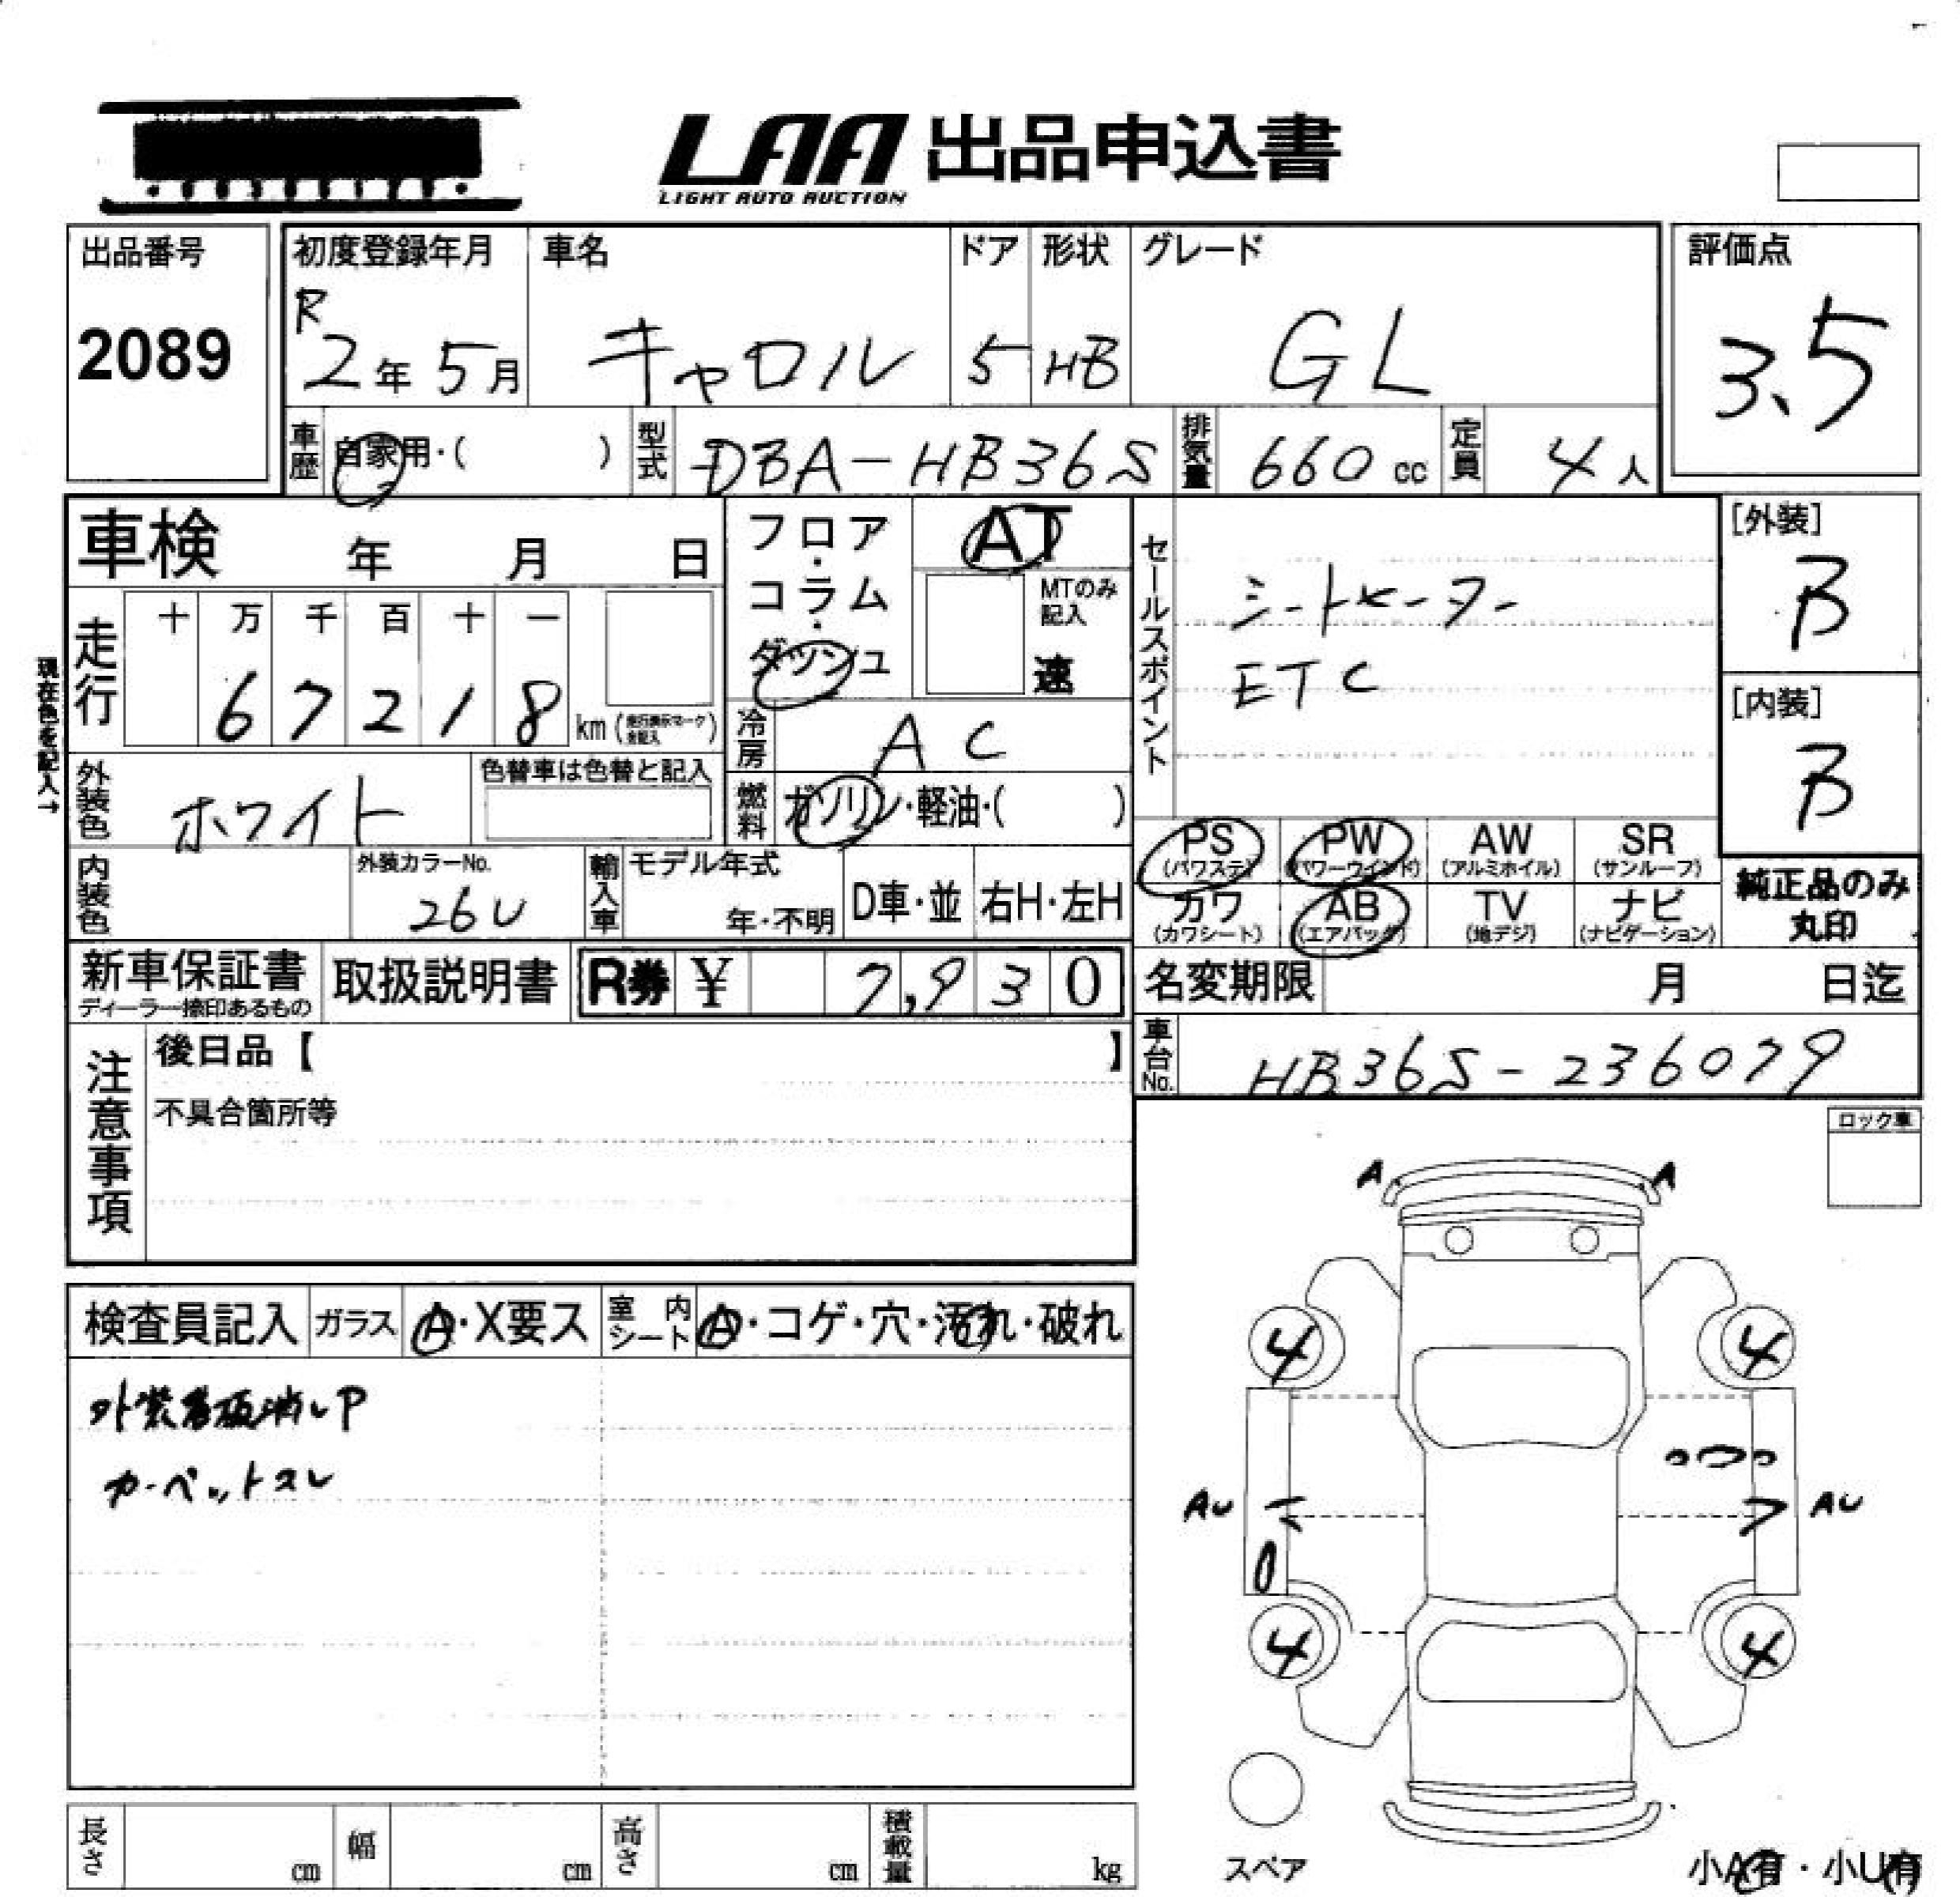 LAA 出品申込書
LIGHT AUTO AUCTION
出品番号
2089
初度登録年月
R
2年 5月
車名
キャロル
ドア
5
形状
HB
グレード
GL
評価点
3.5
車歴 自家用・( )
型式 DBA-HB36S
排気量 660 cc
定員 4人
車検 年 月 日
フロア・コラム・ダッシュ
AT
MTのみ記入
速
セールスポイント
シートヒーター
ETC
[外装]
B
[内装]
B
現在色を記入→
走行
十 万 千 百 十 一
6 7 2 1 8 km
冷房 AC
燃料 ガソリン・軽油・( )
外装色 ホワイト
色替車は色替と記入
内装色
外装カラーNo.
26U
輸入車
モデル年式
年・不明
D車・並
右H・左H
PS (パワステ)
PW (パワーウインド)
AW (アルミホイル)
SR (サンルーフ)
カワ (カワシート)
AB (エアバッグ)
TV (地デジ)
ナビ (ナビゲーション)
純正品のみ
丸印
新車保証書
ディーラー捺印あるもの
取扱説明書
R券 ¥ 7,930
名変期限 月 日迄
車台No. HB36S-236079
注意事項
後日品【 】
不具合箇所等
ロック車
A A
検査員記入
ガラス A・X要ス
室内シート A・コゲ・穴・汚れ・破れ
外装看板消しP
カーペットスレ
4 4
AU AU
4 4
スペア
長さ cm
幅 cm
高さ cm
積載量 kg
小A有・小U有